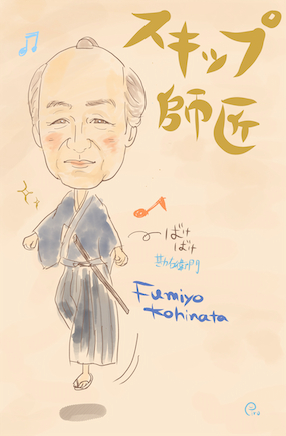 スキップ
師匠
ばけ
ばけ
Fumiyo
Kohinata